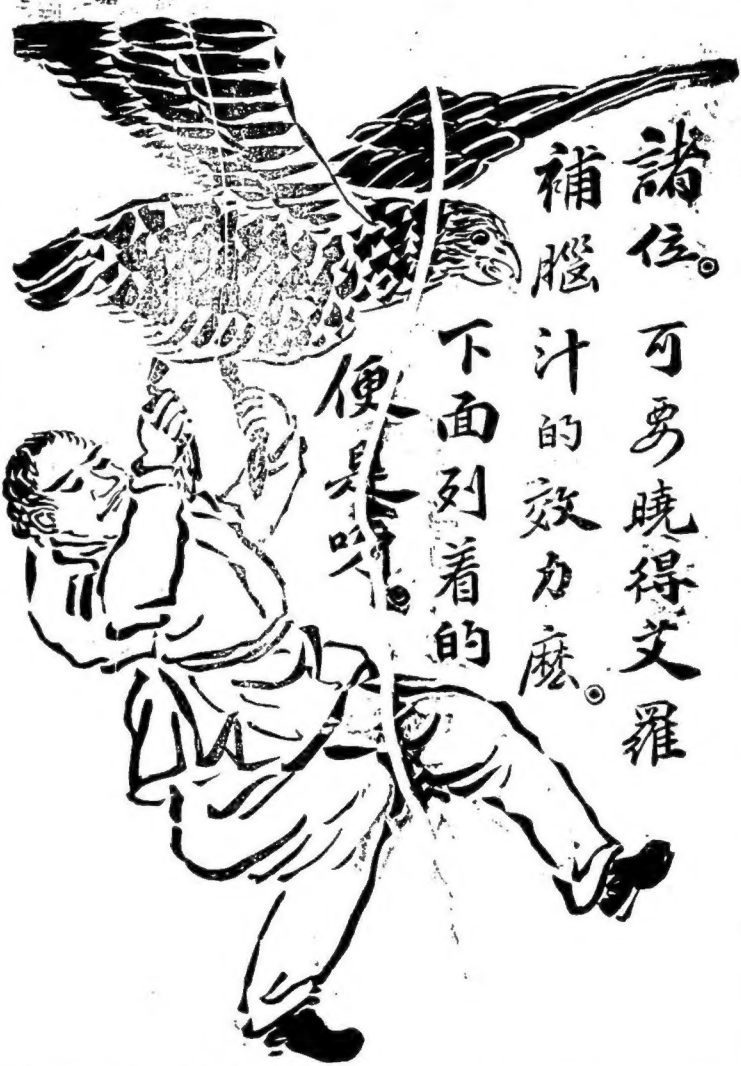 諸位。可要曉得艾羅
補腦汁的效力麽。
下面列着的
便是呀。